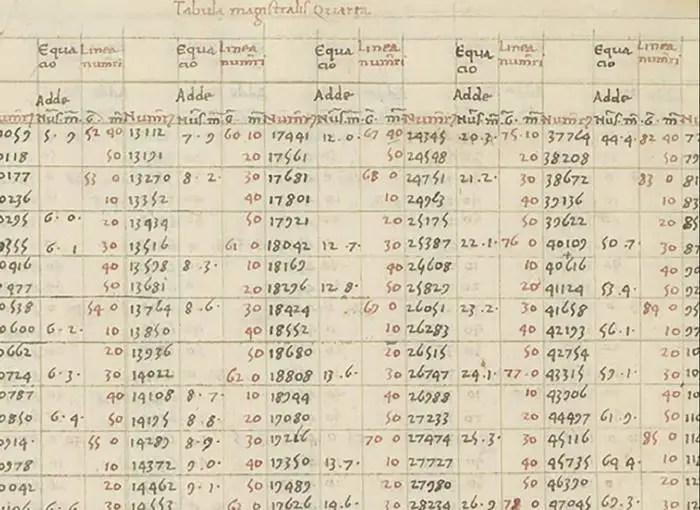 Tabula magistralis Quarta
Equa Linea Equa Linea Equa Linea Equa Linea Equa Linea
cio numeri cio numeri cio numeri cio numeri cio numeri
Adde Adde Adde Adde Adde
Nus. m. G. m Numeri Nus. m. G. m Numeri Nus. m. G. m Numeri Nus. m. G. m Numeri Nus. m. G. m
1059 5 · 9 52 40 13112 7 · 9 60 10 17441 12 · 0 · 67 40 24345 20 · 3 · 75 · 10 37764 44 · 4 · 82 40 77
0118 50 13191 20 17561 50 24548 20 38208 50 79
0177 53 0 13270 8 · 2 · 30 17681 68 0 24751 21 · 2 · 30 38672 83 0 81
0236 10 13352 40 17801 10 24963 40 39136 10 83
0295 6 · 0 · 20 13434 50 17921 20 25175 50 39622 20 85
0355 6 · 1 30 13516 61 0 18042 12 · 7 · 30 25387 22 · 1 · 76 0 40109 50 · 7 · 30
0416 40 13598 8 · 3 · 10 18169 40 25608 10 40616 40
0477 50 13681 20 18296 12 · 8 · 50 25829 20 41124 53 · 4 · 50 92
0538 54 0 13764 8 · 6 · 30 18424 69 0 26051 23 · 2 · 30 41658 84 0 95
0600 6 · 2 · 10 13850 40 18552 10 26283 40 42193 56 · 1 · 10 97
0662 20 13936 50 18680 20 26515 50 42754 20 10
0724 6 · 3 · 30 14022 62 0 18808 13 · 6 · 30 26747 24 · 1 · 77 · 0 43315 59 · 1 · 30 10
0787 40 14108 8 · 7 · 10 18944 40 26988 10 43906 40 10
0850 6 · 4 · 50 14195 8 · 8 · 20 19080 50 27233 20 44497 61 · 9 · 50 110
0914 · 55 0 14284 8 · 9 · 30 19216 70 0 27474 25 · 3 · 30 45116 85 0 11
0978 10 14372 9 · 0 · 40 19350 13 · 7 · 10 27727 40 45735 64 4 · 10 11
0042 20 14462 9 · 1 · 50 19489 20 27980 50 46390 20 12
6 · 6 · 30 14553 63 0 19626 14 · 6 · 30 28234 26 · 9 78 0 47045 69 · 3 · 30 12